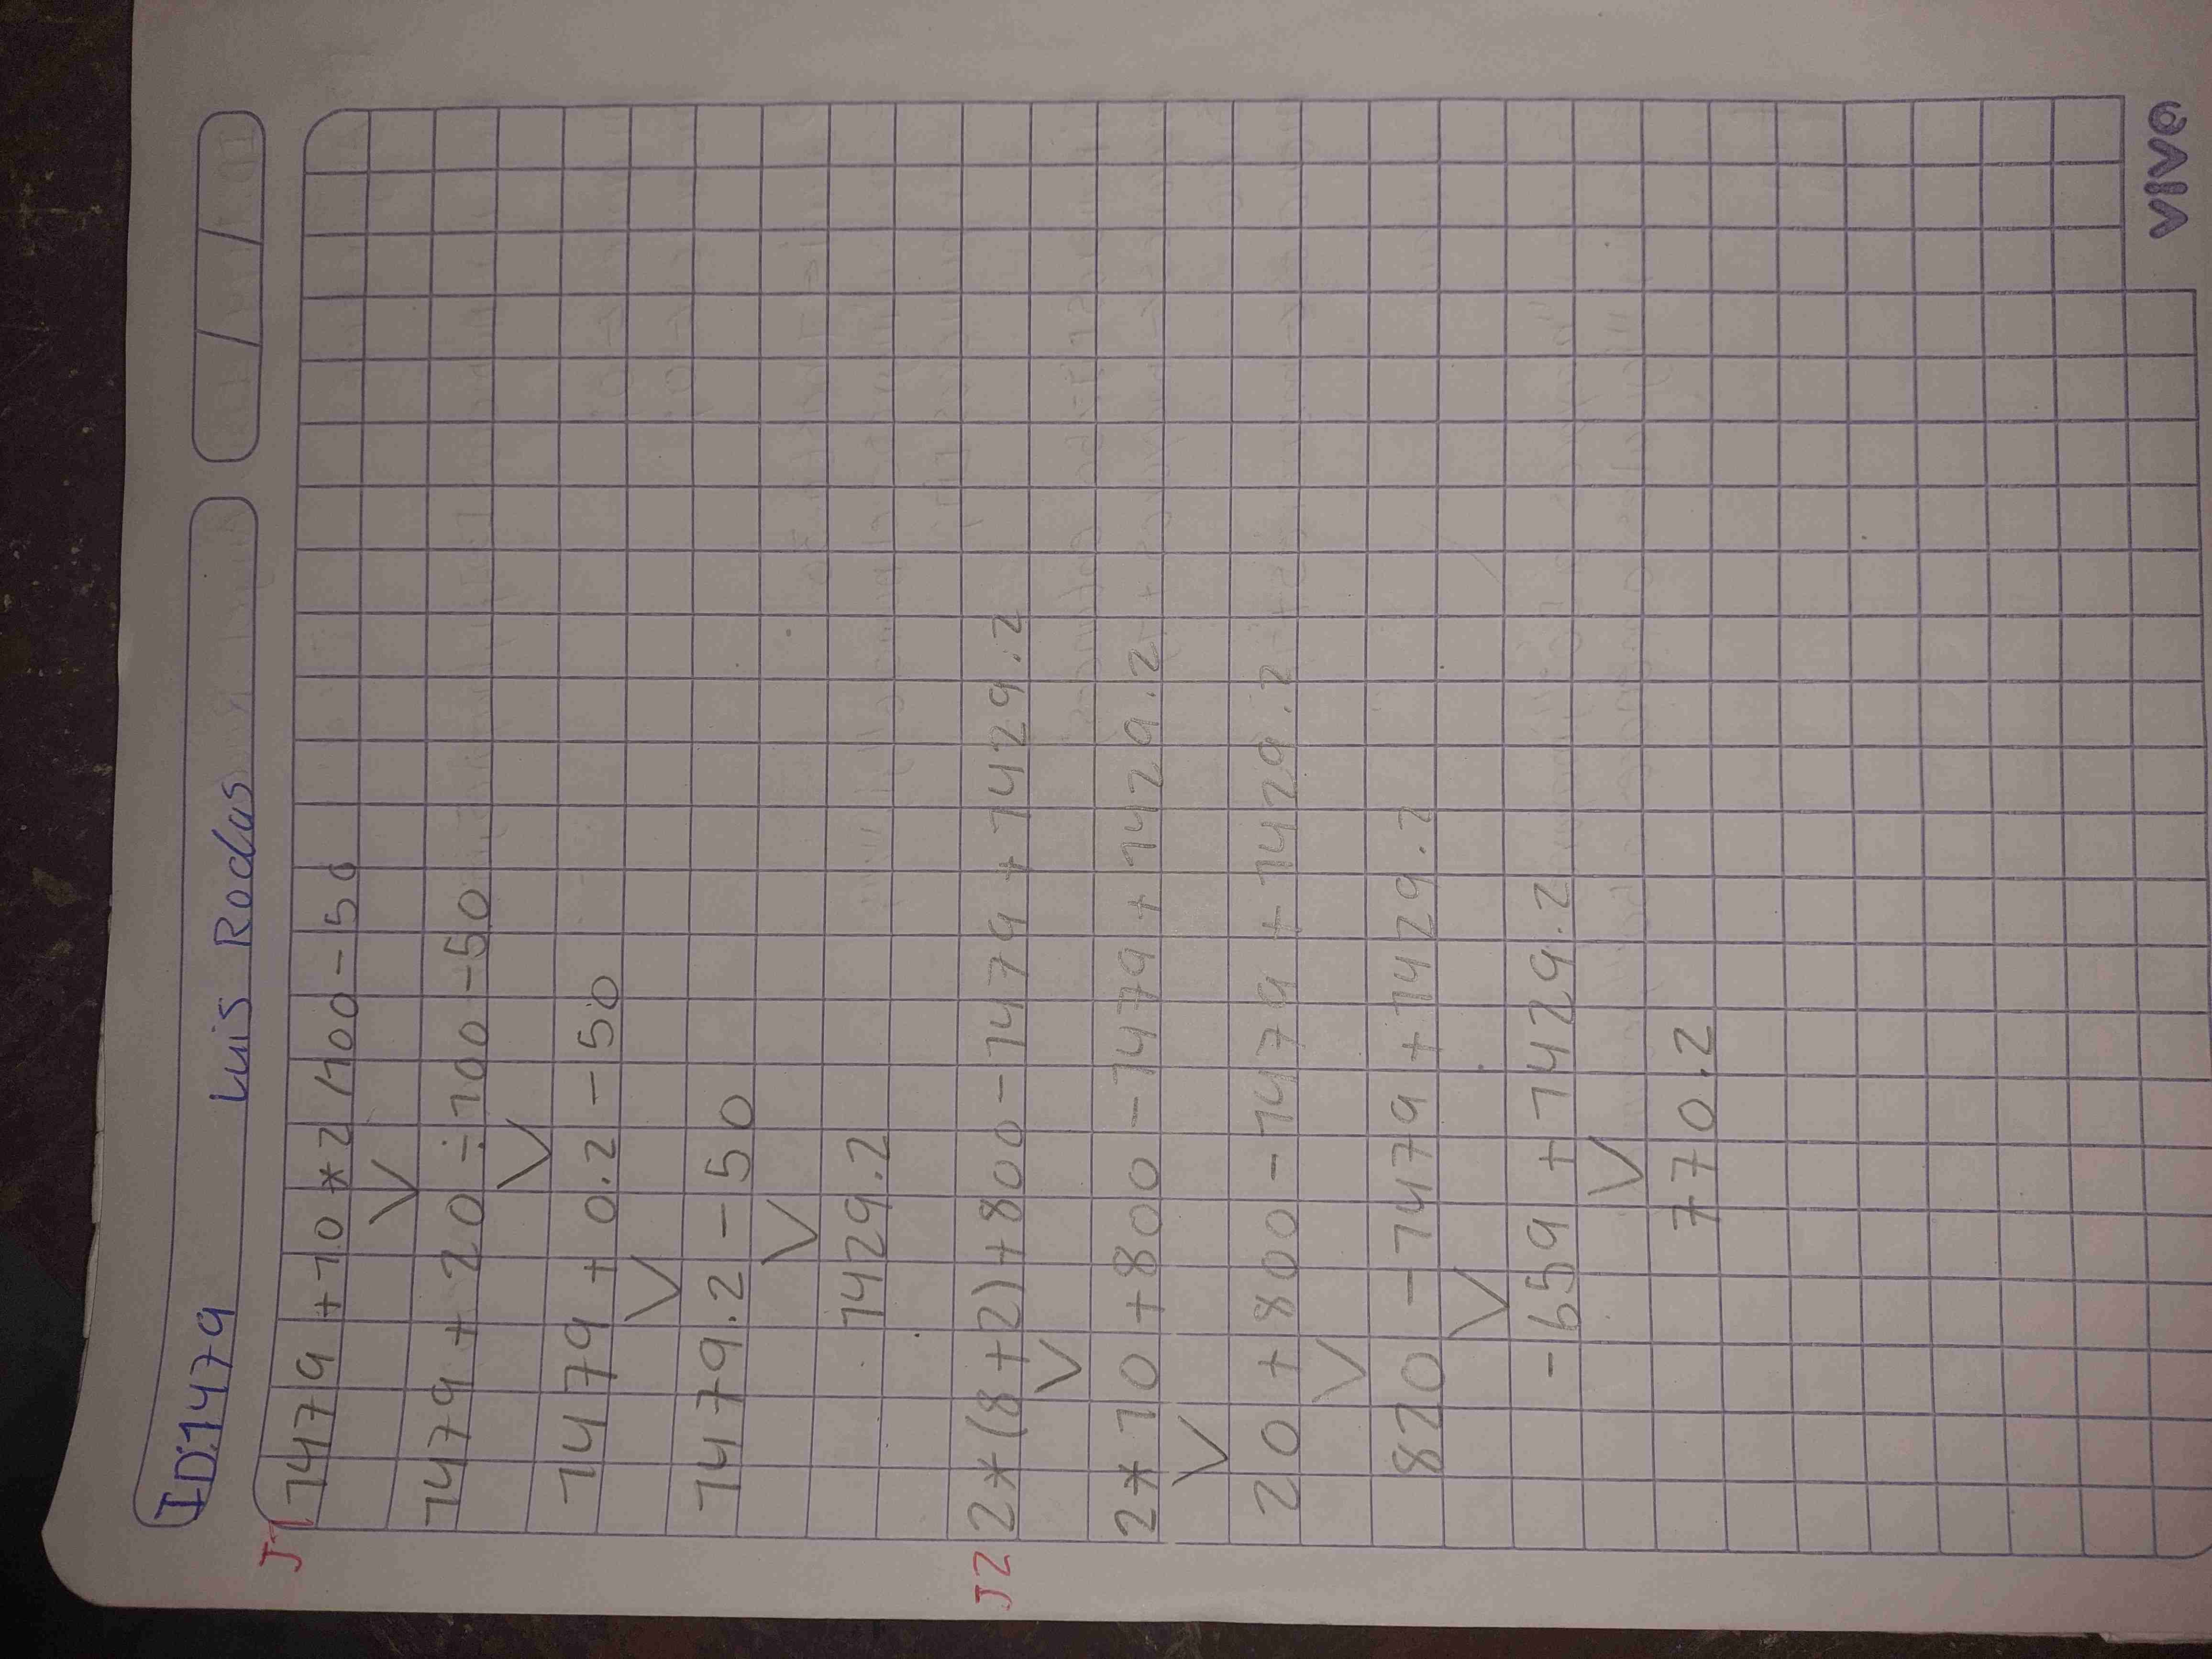 ID:1479 Luis Rodas
J1 1479 + 10 * 2 / 100 - 50
1479 + 20 ÷ 100 - 50
1479 + 0.2 - 50
1479.2 - 50
1429.2
J2 2*(8+2)+800-1479+1429.2
2*10+800-1479+1429.2
20+800-1479+1429.2
820-1479+1429.2
-659+1429.2
770.2
VIVO